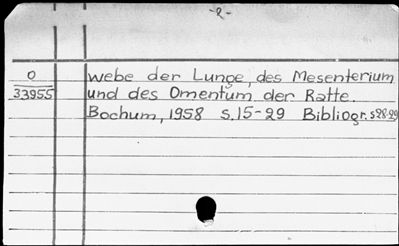 -2-
0 webe der Lunge, des Mesenterium
33955 und des Omentum der Ratte.
Bochum, 1958 S.15-29 Bibliogr. S28-29